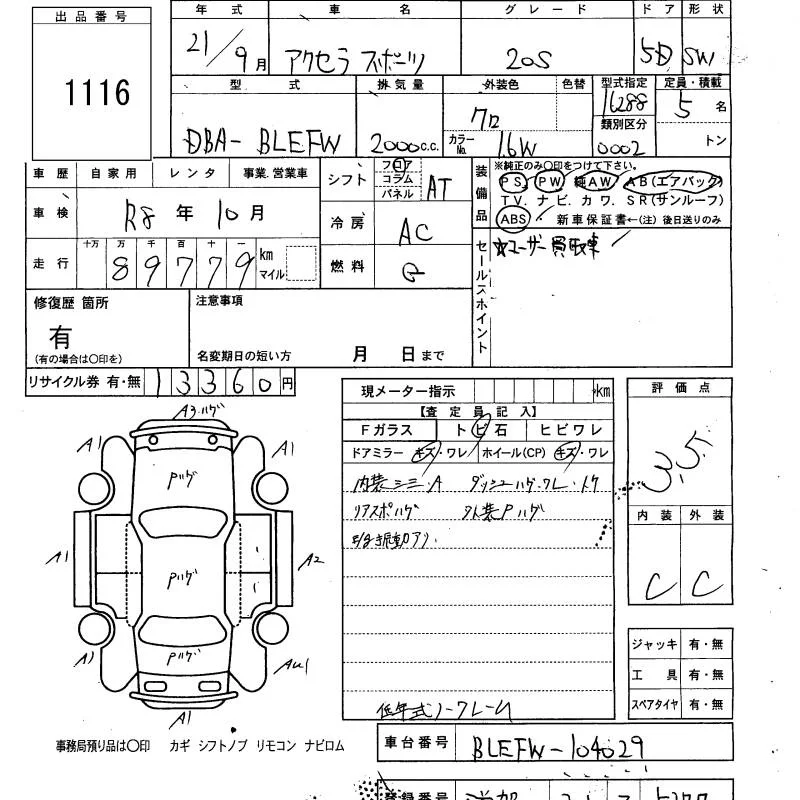 出品番号
1116
年式 車名 グレード ドア 形状
21/9月 アクセラ スポーツ 20S 5D SW
型式 排気量 外装色 色替 型式指定 定員・積載
DBA- BLEFW 2000c.c. クロ 16288 5名
カラーNo. 16W 類別区分 0002 トン
車歴 自家用 レンタ 事業.営業車
車検 R8年10月
走行 十万 万 千 百 十 一 km マイル
89779
シフト フロア コラム パネル AT
冷房 AC
燃料 G
装備品
※純正のみ○印をつけて下さい。
PS. PW 純AW AB(エアバック)
TV. ナビ. カワ. SR(サンルーフ)
ABS 新車保証書←(注)後日送りのみ
セールスポイント
☆ユーザー買取車
修復歴 箇所
有
(有の場合は○印を)
注意事項
名変期日の短い方 月 日まで
リサイクル券 有・無 13360円
現メーター指示 km
【査定員記入】
Fガラス トビ石 ヒビワレ
ドアミラー キズ・ワレ ホイール(CP) キズ・ワレ
内装シミ.A ダッシュハゲ.ワレ.トケ
リアスポハゲ 外装Pハゲ
振動アリ.
低年式ノークレーム
評価点
3.5
内装 外装
C C
ジャッキ 有・無
工具 有・無
スペアタイヤ 有・無
A3.ハゲ
A1 A1
Pハゲ
A1 Pハゲ A2
A1 Pハゲ AU1
A1
事務局預り品は○印 カギ シフトノブ リモコン ナビロム
車台番号 BLEFW-104029
登録番号